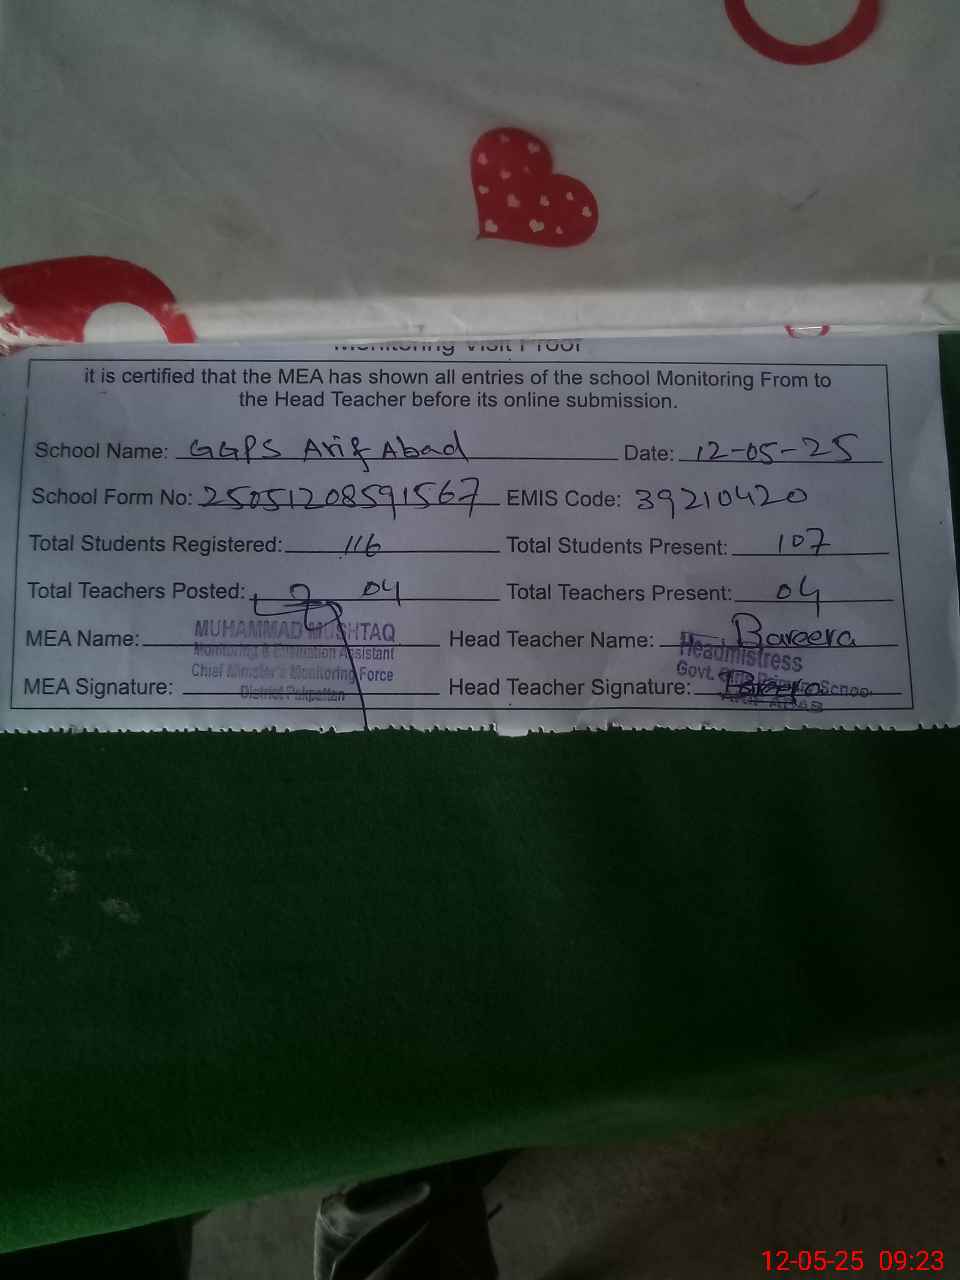 Monitoring Visit Proof
it is certified that the MEA has shown all entries of the school Monitoring From to
the Head Teacher before its online submission.
School Name: GGPS Arif Abad Date: 12-05-25
School Form No: 25051208591567 EMIS Code: 39210420
Total Students Registered: 116 Total Students Present: 107
Total Teachers Posted: 04 Total Teachers Present: 04
MEA Name: MUHAMMAD MUSHTAQ Head Teacher Name: Bareera
Monitoring & Evaluation Assistant Headmistress
Chief Minister's Monitoring Force Govt. Girls Primary School
MEA Signature: District Pakpattan Head Teacher Signature: Bareera
ARIF ABAD
12-05-25 09:23